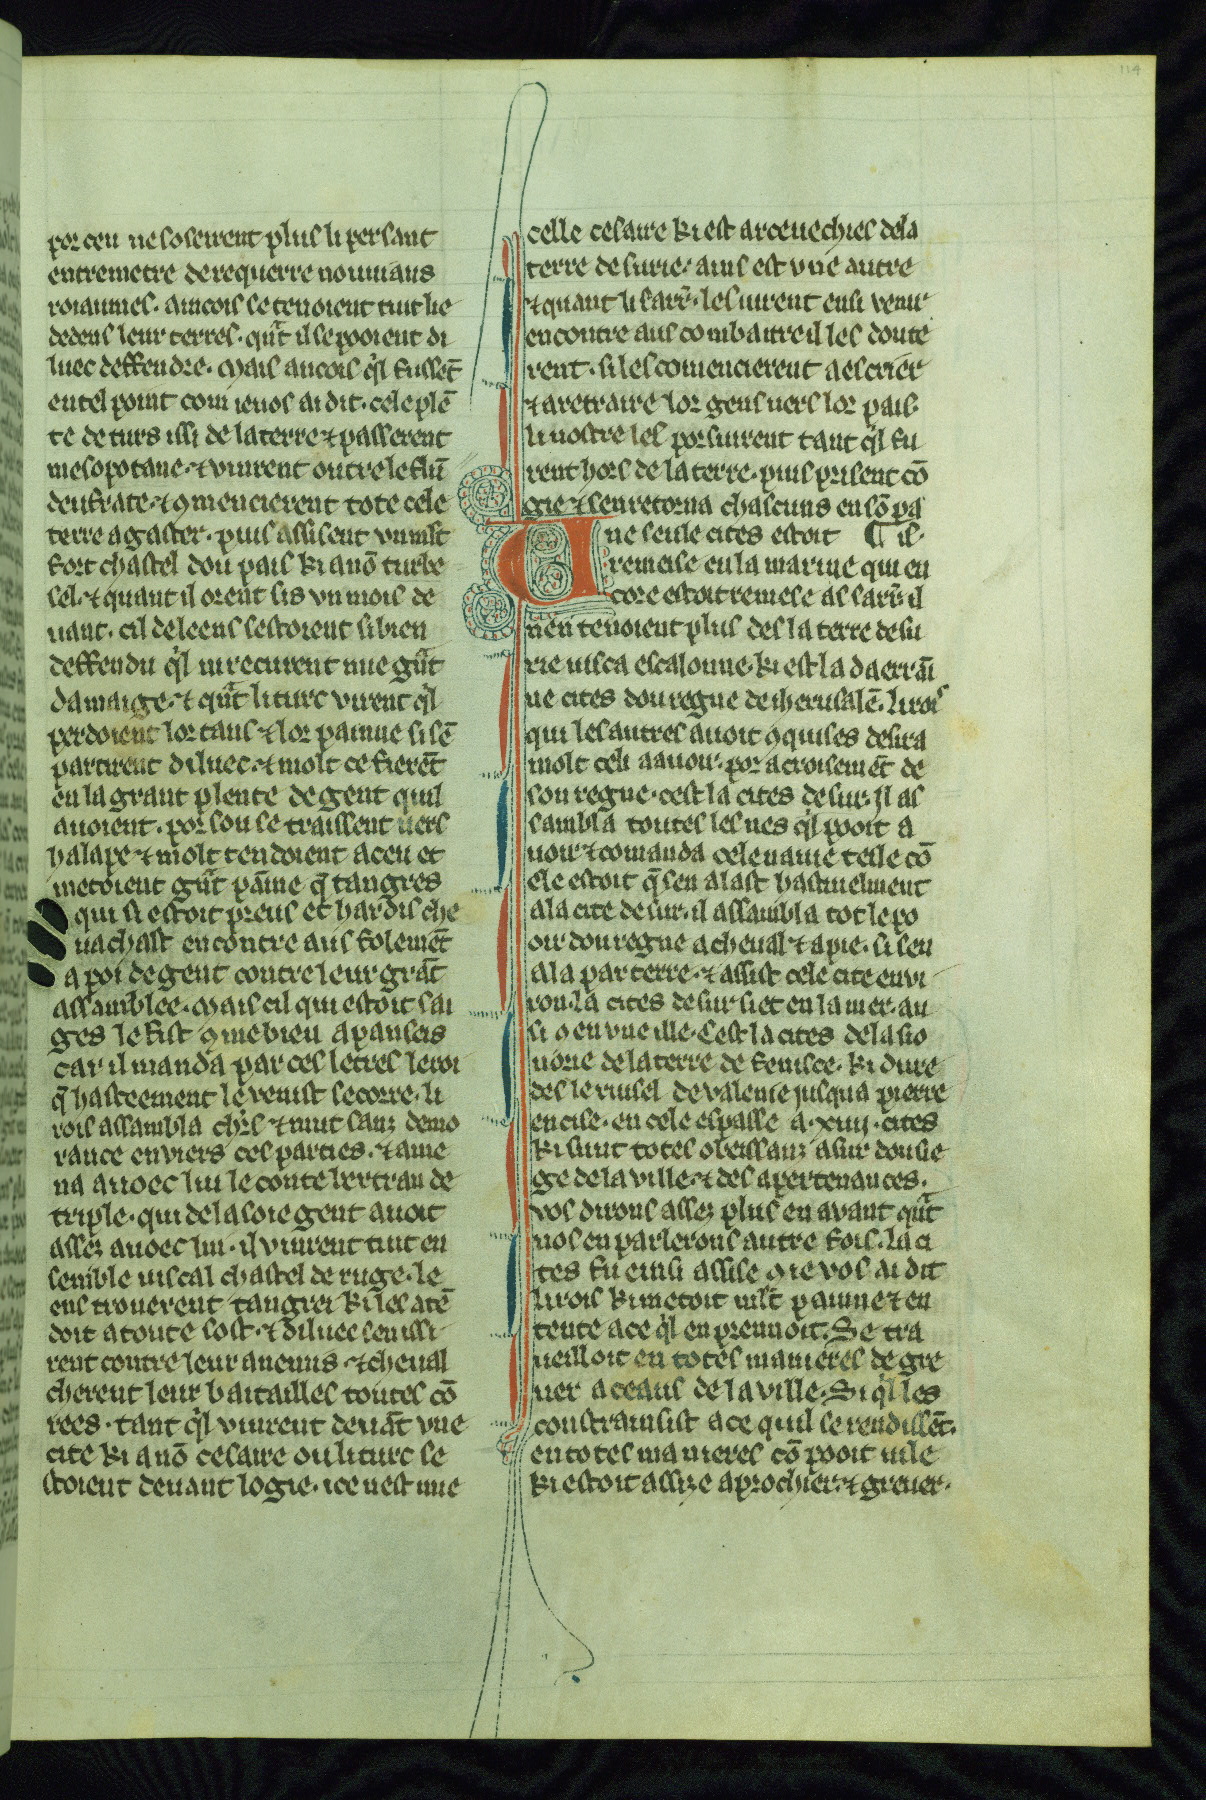 114
por ceu ne soseirent plus li persant
entremetre de requerre nouuiaus
roiaumes. aincois se tenoient tuit lie
dedens leur terres. qu̾t il se pooient di
luec deffendre. Mais ancois q̾l fussēt
en tel point com ie uos ai dit. cele plē
te de turs issi de la terre ⁊ passerent
mesopotane. ⁊ vinrent outre le flū
deufrate. ⁊ ꝯmencierent tote cele
terre a gaster. puis assisent vn mlt
fort chastel dou pais ki a nō turbe
sel. ⁊ quant il orent sis vn mois de
uant. cil de leens sestoient si bien
deffendu q̾l ni recurent nue gn̄t
damaige. ⁊ qn̄t li turc virent q̾l
perdoient lor tans ⁊ lor painne si sē
partirent diluec. ⁊ molt ce fierēt
en la grant plente de gent quil
auoient. por sou se traissent uers
halape ⁊ molt tendoient a ceu et
metoient gn̄t pāine q̄ tangres
qui si estoit preus et hardis che
uachast encontre aus folemēt
a poi de gent contre leur grāt
assamblee. Mais cil qui estoit sai
ges le fist ꝯme bien apanseis
car il manda par ces letres le roi
q̄ hasteement le venist secorre. li
rois assambla ch̾rs ⁊ mut sanz demo
rance enviers ces parties. ⁊ ame
na auoec lui le conte bertran de
triple. qui de la soie gent auoit
assez auoec lui. il vinrent tuit en
semble iuscal chastel de ruge. le
ens trouerent tangrei ki les atē
doit a toute sost. ⁊ diluec sen issi
rent contre leur anemis ⁊ cheual
cherent leur baitailles toutes cō
rees. tant q̾l vinrent deuāt vne
cite ki a nō cesaire ou li turc se
stoient deuant logie. ice nest mie
celle cesaire ki est arceuechies de la
terre de surie. ains est vne autre
⁊ quant li sarr̄. les uirent ensi venir
encontre aus combaitre il les doute
rent. si les comencierent a escrier
⁊ a retraire lor gens uers lor pais.
li nostre les porsuirent tant q̾l fu
rent hors de la terre. puis prisent cō
gie ⁊ sen retorna chascuns en sō pa
Une seule cites estoit ¶ is.
remeise en la marine qui en
core estoit remese as sarr̄. il
nen tenoient plus des la terre de su
rie iusca escalonne. ki est la daerrāi
ne cites dou regne de iherusalē. li rois
qui les autres auoit ꝯquises desira
molt celi a auoir. por acroisemēt de
son regne. cest la cites de sur. Il as
sambla toutes les nes q̾l poot a
uoir ⁊ comanda cele nauie teile cō
ele estoit q̄ sen alast hastiuelment
a la cite de sur. il assambla tot le po
oir dou regne a cheual ⁊ a pie. si sen
ala par terre. ⁊ assist cele cite envi
ron. la cites de sur siet en la mer. au
si ꝯ en vne ille. Cest la cites de la sio
norie de la terre de fenisce. ki dure
des le ruisel de valenie jusqua pierre
encise. en cele espasse a .xiiij. cites
ki sunt totes obeissanz a sur dou sie
ge de la ville. ⁊ des apertenances.
vos dirons assez plus en avant qn̄t
nos en parlerons autre fois. la ci
tes fu einsi assise ꝯ ie vos ai dit
li rois ki metoit mlt painne ⁊ en
tente a ce q̾l en prennoit. Se tra
ueilloit en totes manieres de gre
uer a ceaus de la ville. Si q̾l les
constrainsist a ce quil se rendissēt.
en totes manieres cō pooit uile
ki estoit assize aprochier. ⁊ greuer.